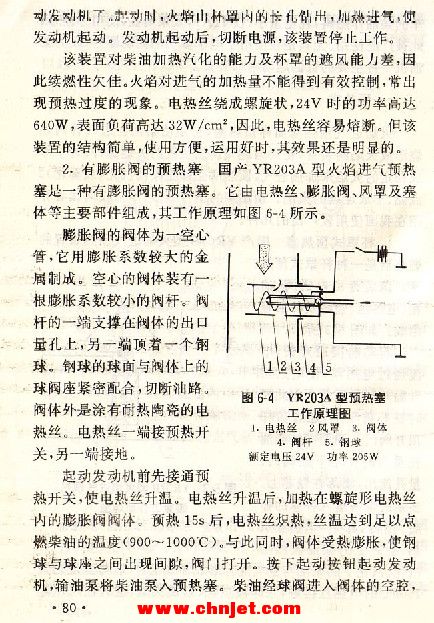 动发动机了。起动时,火焰由杯罩内的长孔钻出,加热进气,使
发动机起动。发动机起动后,切断电源,该装置停止工作。
该装置对柴油加热汽化的能力及杯罩的遮风能力太差,因
此续燃性欠佳。火焰对进气的加热量不能得到有效控制,常出
现预热过度的现象。电热丝绕成螺旋状,24V 时的功率高达
640W,表面负荷高达 32W/cm²,因此,电热丝容易熔断。但该
装置的结构简单,使用方便,运用好时,其效果还是明显的。
2. 有膨胀阀的预热塞 国产 YR203A 型火焰进气预热
塞是一种有膨胀阀的预热塞。它由电热丝、膨胀阀、风罩及塞
体等主要部件组成,其工作原理如图 6-4 所示。
膨胀阀的阀体为一空心
管,它用膨胀系数较大的金
属制成。空心的阀体装有一
根膨胀系数较小的阀杆。阀
杆的一端支撑在阀体的出口
量孔上,另一端顶着一个钢
球。钢球的球面与阀体上的
球阀座紧密配合,切断油路。
阀体外是涂有耐热陶瓷的电
热丝。电热丝一端接预热开
关,另一端接地。
1 2 3 4 5
图 6-4 YR203A 型预热塞
工作原理图
1. 电热丝 2 风罩 3. 阀体
4. 阀杆 5. 钢球
额定电压 24V 功率 205W
起动发动机前先接通预
热开关,使电热丝升温。电热丝升温后,加热在螺旋形电热丝
内的膨胀阀阀体。预热 15s 后,电热丝炽热,丝温达到足以点
燃柴油的温度(900~1000℃)。与此同时,阀体受热膨胀,使钢
球与球座之间出现间隙,阀门打开。按下起动按钮起动发动
机,输油泵将柴油泵入预热塞。柴油经球阀进入阀体的空腔,
·80·
www.chnjet.com